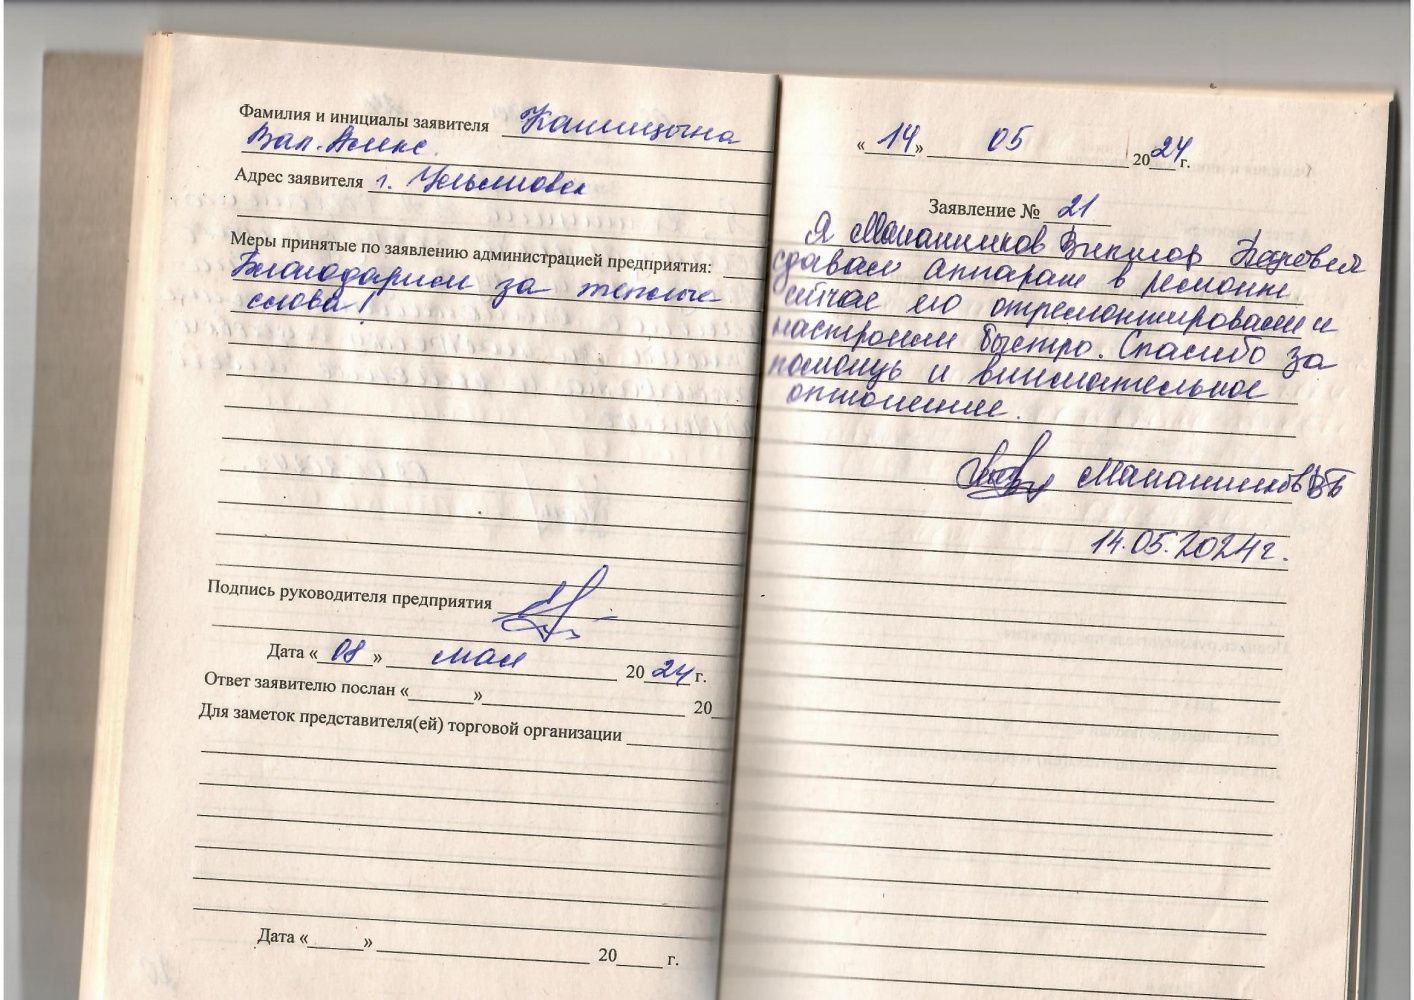 Фамилия и инициалы заявителя Камицына
Вал. Алекс.
Адрес заявителя г. Ульяновск
Меры принятые по заявлению администрацией предприятия:
Благодарим за теплые
слова!
Подпись руководителя предприятия
Дата « 08 » мая 2024 г.
Ответ заявителю послан «      »                20
Для заметок представителя(ей) торговой организации
Дата «      »                20      г.
« 14 » 05 2024 г.
Заявление № 21
Я Мананников Виктор Петрович
сдавал аппарат в ремонт
сейчас его отремонтировали и
настроили быстро. Спасибо за
помощь и внимательное
отношение.
Мананников ВП
14.05.2024г.